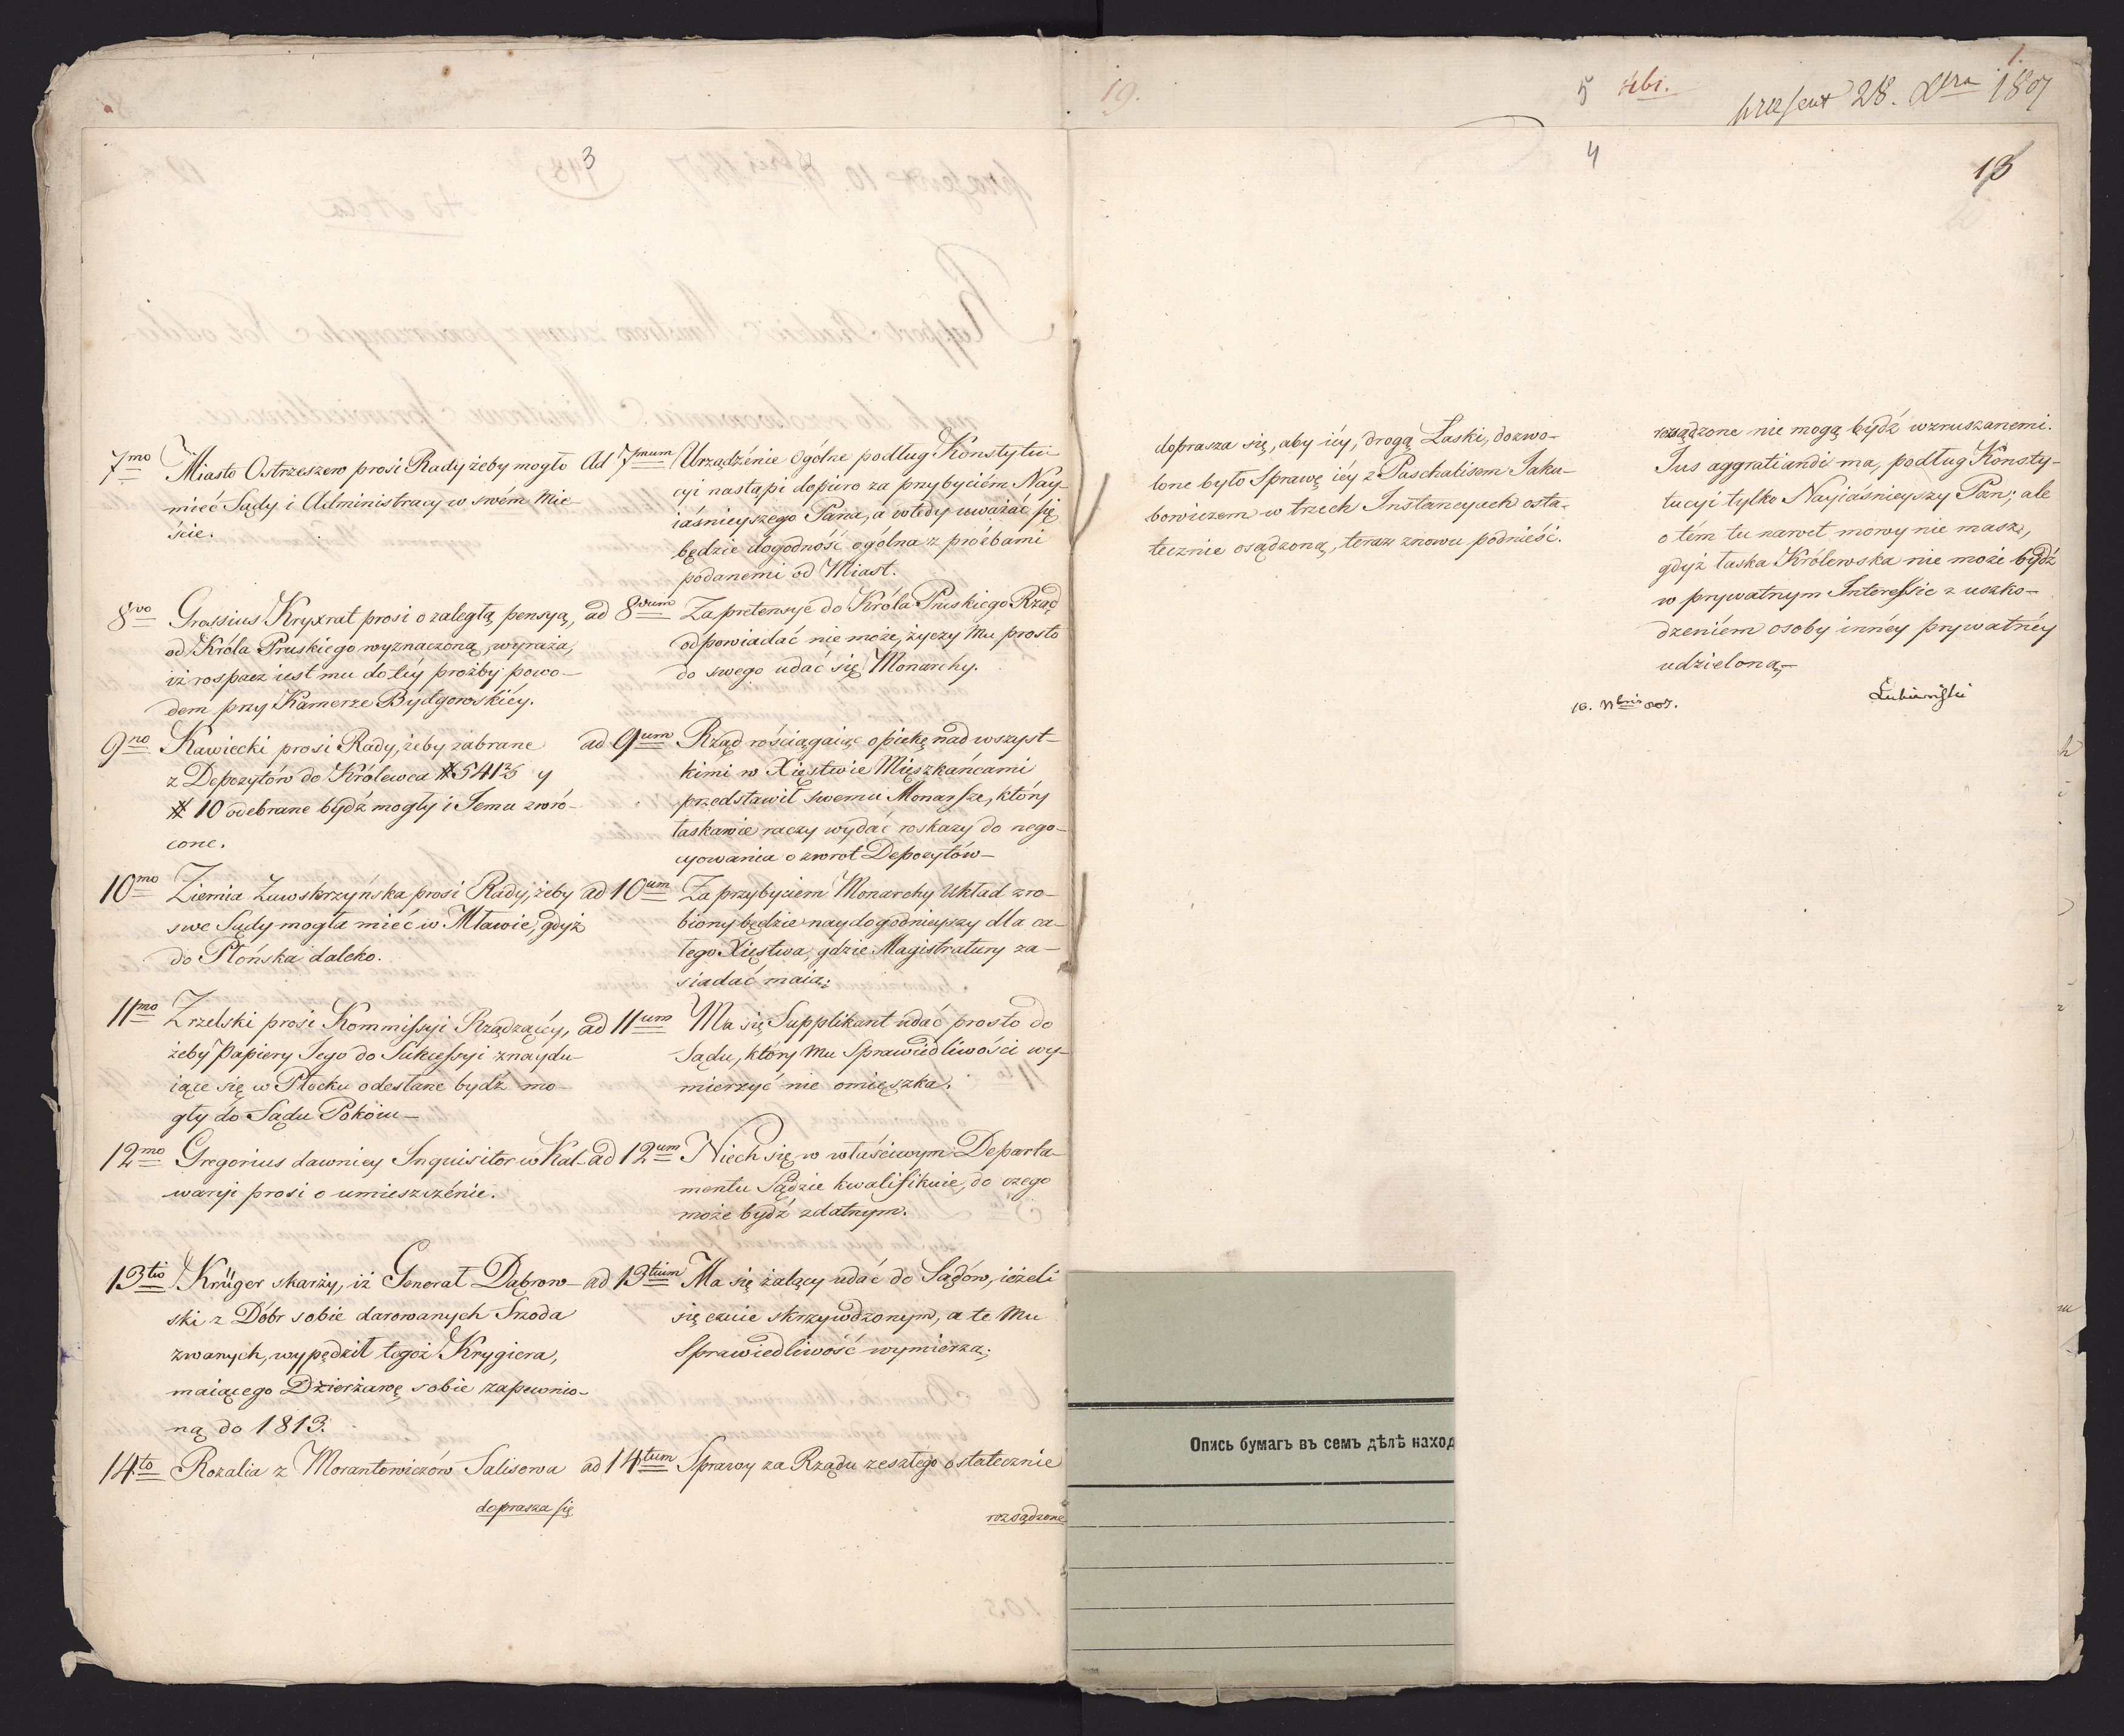 3
7mo Miasto Ostrzeszew prosi Rady żeby mogło
mieć Sądy i Administracyą w swém Mie-
ście.
Ad 7mum Urządzénie Ogólne podług Konstytu-
cyi nastąpi dopiero za przybyciém Nay-
iaśnieyszego Pana, a wtedy uważać się
będzie dogodność ogólna z prośbami
podanemi od Miast.
8vo Grassius Kryxrat prosi o zaległą pensyą,
od Króla Pruskiego wyznaczoną, wyraża,
iż rospacz iest mu do téy proźby powo-
dem przy Kamerze Bydgowskiéy.
ad 8vum Za pretensye do Króla Pruskiego Rząd
odpowiadać nie może, życzy mu prosto
do swego udać się Monarchy.
9no Kawiecki prosi Rady, żeby zabrane
z Depozytów do Królewca # 5413 y
# 10 odebrane bydź mogły i Jemu zwró-
cone.
ad 9um Rząd rościągaiąc opiekę nad wszyst-
kimi w Xięstwie Mięszkańcami
przedstawił swemu Monarsze, który
łaskawie raczy wydać roskazy do nego-
cyowania o zwrot Depozytów-
10mo Ziemia Zawskrzyńska prosi Rady, żeby
swe Sądy mogła mieć w Mławie, gdyż
do Płońska daleko.
ad 10um Za przybyciem Monarchy Układ zro-
biony będzie naydogodnieyszy dla ca-
łego Xięstwa, gdzie Magistratury za-
siadać maią;
11mo Zrzelski prosi Kommissyi Rządzącéy,
żeby Papiery Jego do Sukcessyi znaydu-
iące się w Płocku odesłane bydź mo-
gły do Sądu Pokoiu-
ad 11um Ma się Supplikant udać prosto do
Sądu, który mu Sprawiedliwości wy-
mierzyć nie omięszka.
12mo Gregorius dawniey Inquisitor w Kal-
waryi prosi o umieszczénie.
ad 12um Niech się w właściwym Departa-
mentu Sądzie kwalifikuie, do czego
może bydź zdatnym.
13tio Krüger skarży, iż Generał Dąbrow-
ski z Dóbr sobie darowanych Srzoda
zwanych, wypędził tegoż Krygiera,
maiącego Dzierżawę sobie zapewnio-
ną do 1813.
ad 13tium Ma się żalący udać do Sądów, ieżeli
się czuie skrzywdzonym, a te mu
Sprawiedliwość wymierzą;
14to Rozalia z Morantowiczów Salisowa
doprasza się
ad 14tum Sprawy za Rządu zeszłego ostatecznie
rozsądzone
19.
5
1.
praesent 28. Xbra 1807
4
13
doprasza się, aby iéy, drogą Łaski, dozwo-
lone było Sprawę iéy z Paschalisem Jaku-
bowiczem w trzech Instancyach osta-
tecznie osądzoną, teraz znowu podnieść.
rozsądzone nie mogą bydź wzruszanemi.
Jus aggratiandi ma, podług Konsty-
tucyi tylko Nayiaśnieyszy Pan; ale
o tém tu nawet mowy nie masz,
gdyż łaska Królewska nie może bydź
w prywatnym Interessie z uszko-
dzeniém osoby innéy prywatnéy
udzieloną.-
10. Nbris 807.
Łubieński
Опись бумагъ въ семъ дѣлѣ наход